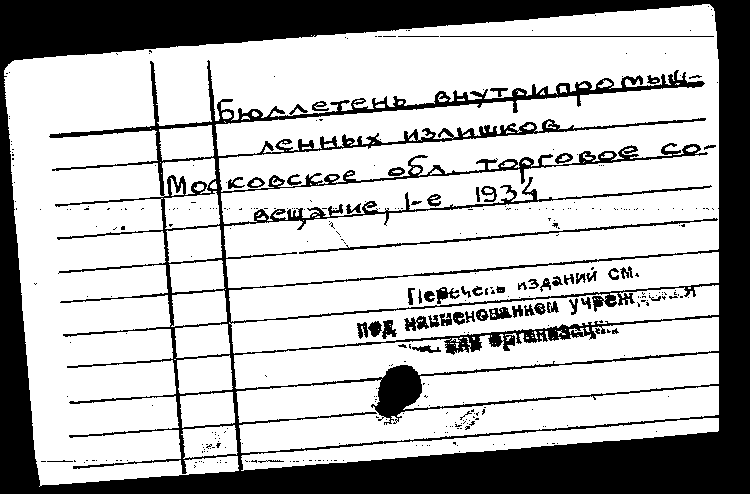 Бюллетень внутрипромыш-
ленных излишков.
Московское обл. торговое со-
вещание, 1-е. 1934
Перечень изданий см.
под наименованием учреждения
или организации.